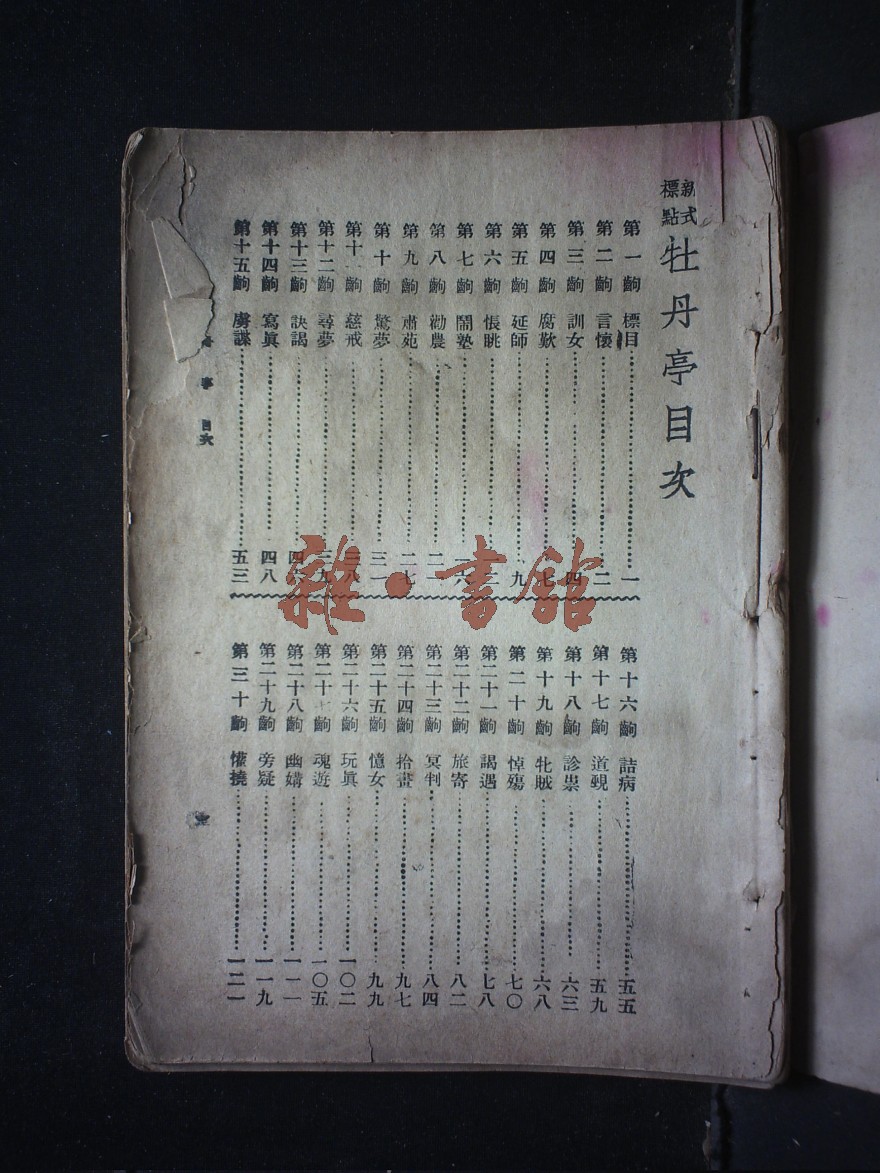 新式標點 牡丹亭目次
第一齣 標目 一
第二齣 言懷 二
第三齣 訓女 四
第四齣 腐歎 七
第五齣 延師 九
第六齣 悵眺
第七齣 閨塾 一六
第八齣 勸農 二一
第九齣 肅苑 二七
第十齣 驚夢 三一
第十一齣 慈戒 三八
第十二齣 尋夢 三九
第十三齣 訣謁
第十四齣 寫眞 四八
第十五齣 虜諜 五三
第十六齣 詰病 五五
第十七齣 道覡 五九
第十八齣 診祟 六三
第十九齣 牝賊 六八
第二十齣 悼殤 七〇
第二十一齣 謁遇 七八
第二十二齣 旅寄 八二
第二十三齣 冥判 八四
第二十四齣 拾畫 九七
第二十五齣 憶女 九九
第二十六齣 玩眞 一〇二
第二十七齣 魂遊 一〇五
第二十八齣 幽媾 一一一
第二十九齣 旁疑 一一九
第三十齣 懽撓 一二一
目次
雜·書館